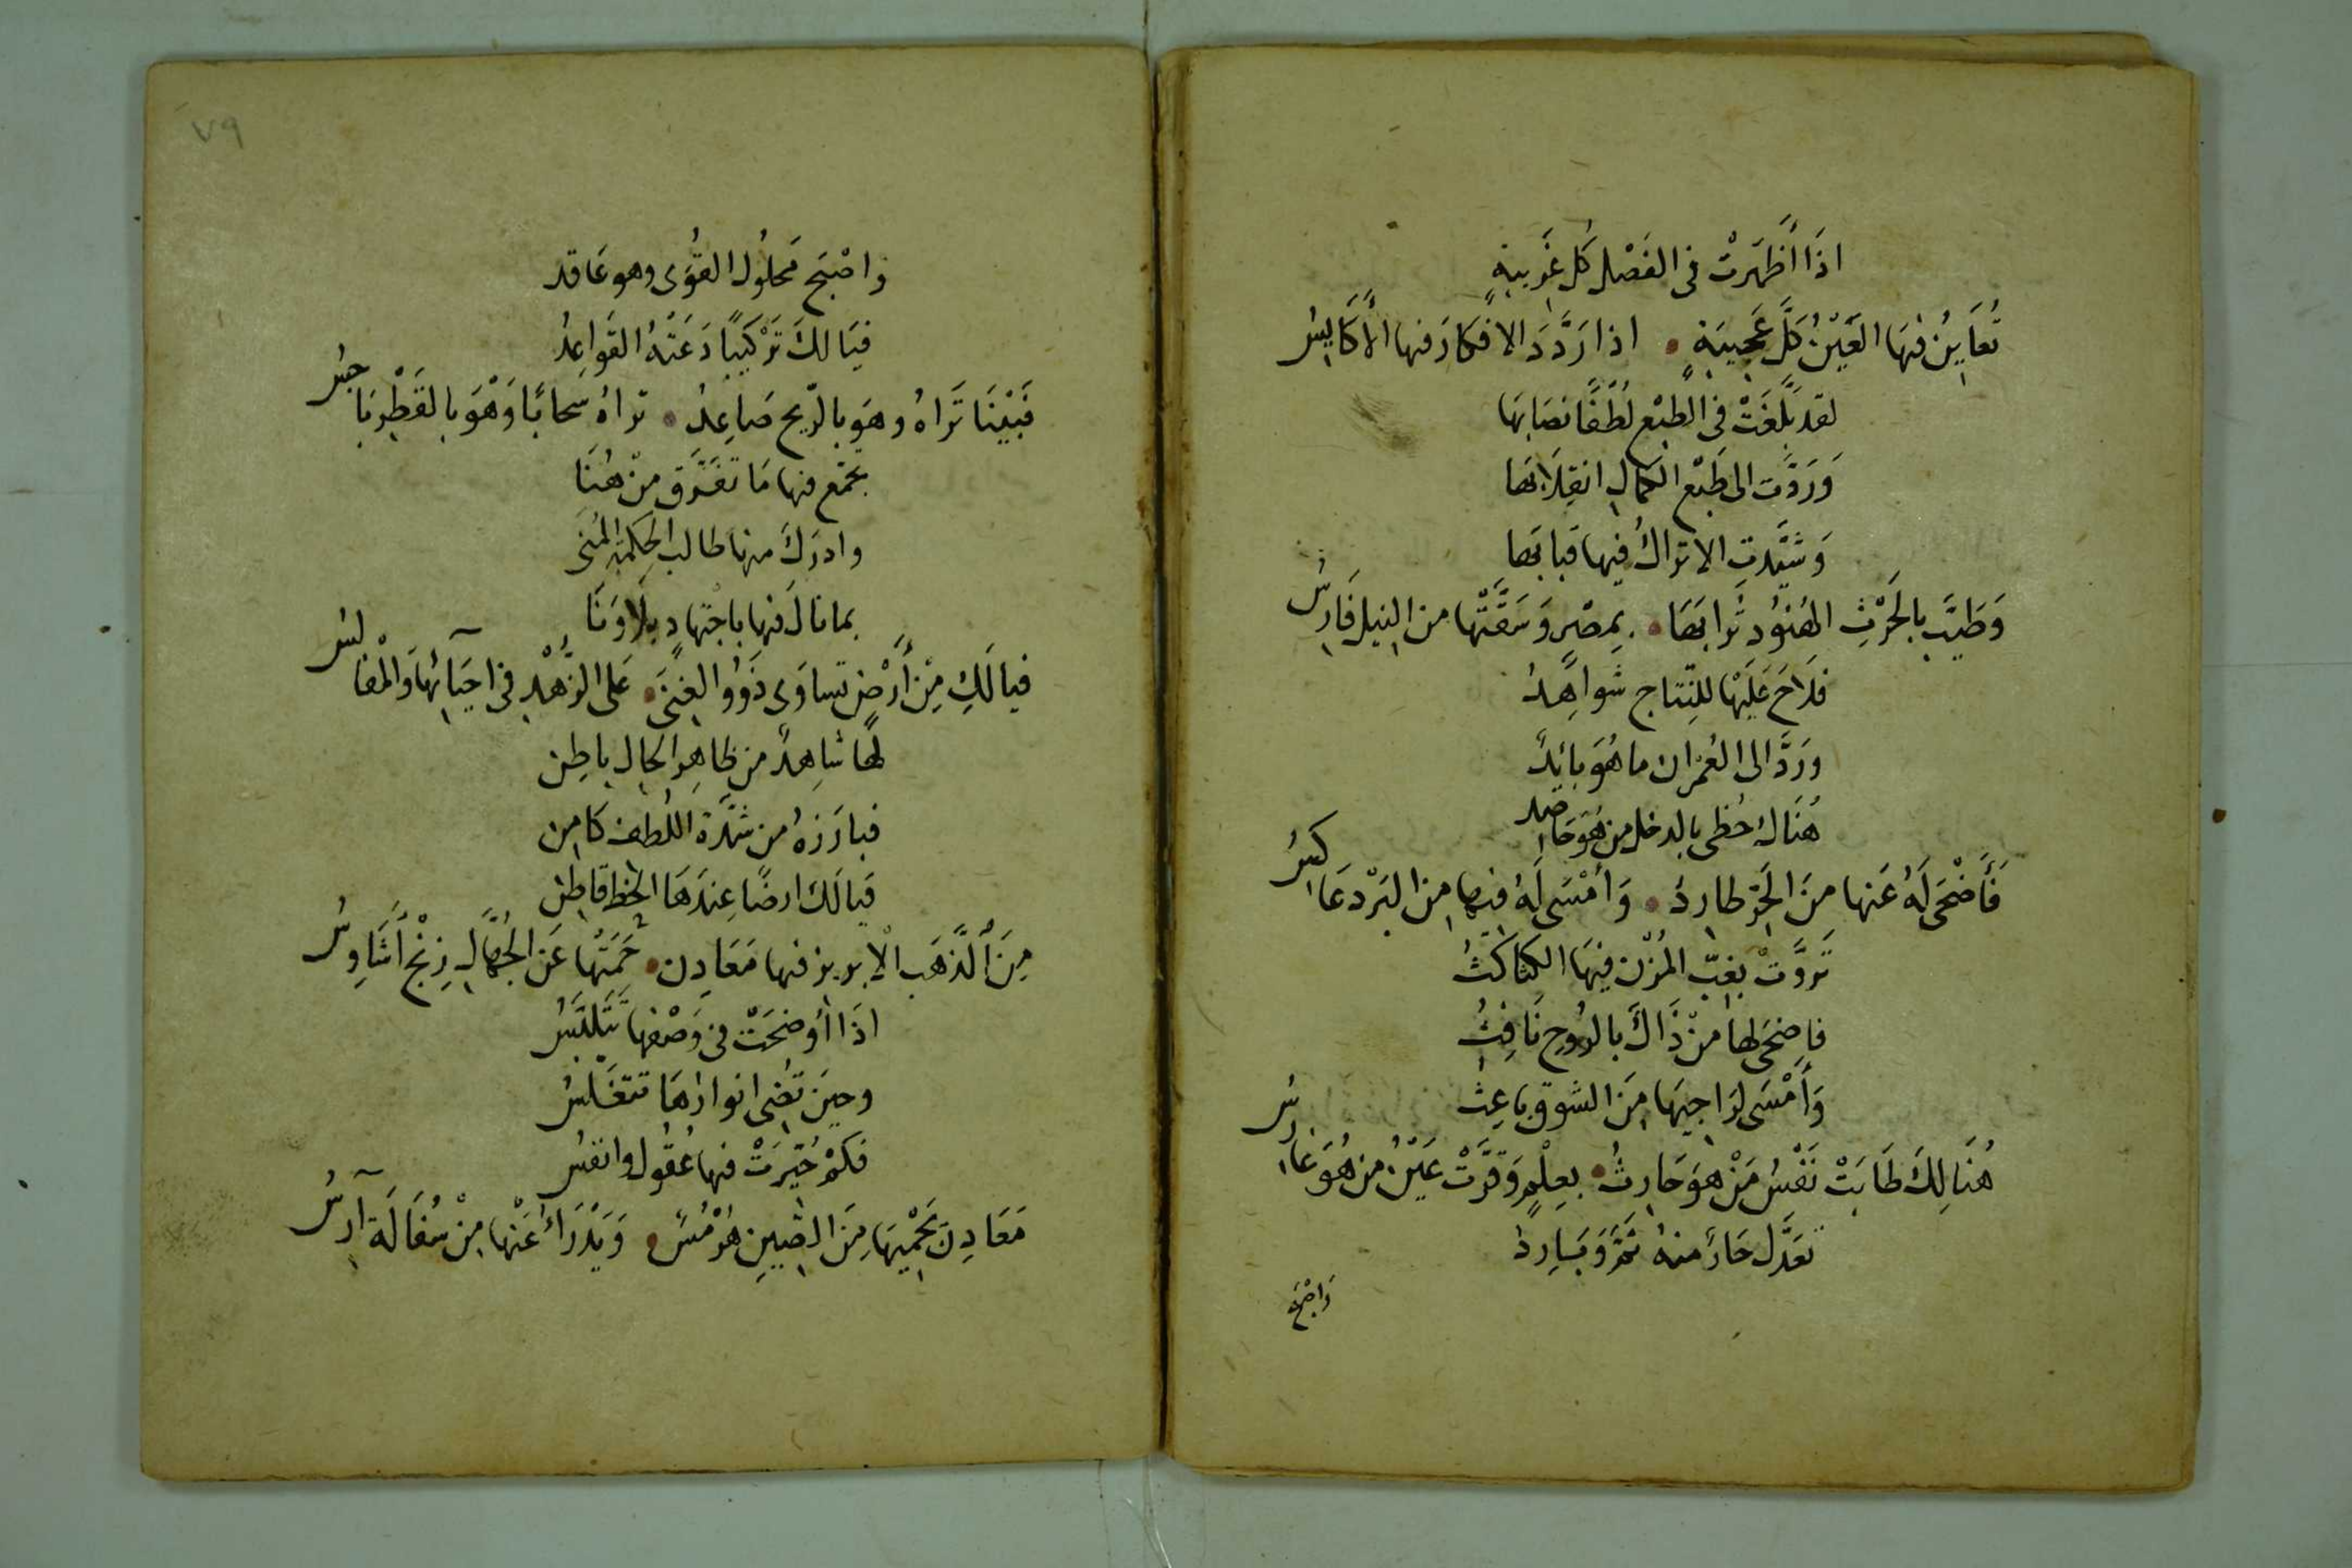 اذَا أَظهَرتْ فى الفَصْلِ كُل غَرِيبةٍ
تُعَايِنُ فيهَا العَيْنُ كُلَّ عَجِيبَةٍ • اذا رَدَّدَ الافكارَ فيها الأَكَايِسُ
لقد بَلَغَتْ فى الطبْعِ لُطْفًا نصَابهَا
وَرَدَّت الى طَبْع الكمالِ انقِلَابَها
وَشَيَّدتِ الاتراكُ فيها قبابَها
وَطَيَّبَ بالحَرْثِ الهُنُودُ تُرابَهَا • بِمِصْرٍ وَسَقَتْها من النيلِ فَارِسُ
فلَاحَ عَلَيهَا للنِتاج شواهِدُ
ورَدَّ الى العُمْران ما هُوَ بائِدُ
هُنَاكَ حُظى بالدخل من هُوَ حَاصِد
فَأَضْحَى لَهُ عَنها مِنَ الحَرِّ طاردُ • وَأمْسَى لَهُ فيها مِنَ البَرْد عَاكِسُ
تَروَّتْ بِغبّ المُزْن فيهَا الكثاكثُ
فاضحى لها منْ ذَاكَ بالرُوحِ نَافِثُ
وَأَمْسَى لِرَاجيهَا مِنَ الشوق بَاعِثُ
هُنَالِكَ طَابَتْ نَفْسُ مَنْ هوَ حَارِثُ • بِعِلْمٍ وَقَرَّتْ عَيْنُ من هُوَ غَارِسُ
تعَدَّل حَارٌ منهُ ثمَّ وَبَارِدُ
وَاصْبَحَ
٧٩
وَاصْبَح مَحلُولُ القُوَى وهو عَاقد
فيَا لكَ تَرْكيبًا دَعَتْهُ القَواعِدُ
فَبَيْنَا تَرَاهُ وهوَ بالرّيح صَاعِدُ • تراهُ سَحابًا وَهْوَ بالقَطْرِ بَاجِسُ
تجَمّع فيها مَا تفَرَّق منْ هُنَا
وادرَكَ منها طالب الحِكمَةِ المُنَى
بما نالَ فيها باجتهادٍ بِلَا وَنَا
فيا لَكِ مِنْ أَرضٍ تساوَى ذَوُو الغِنَى • عَلى الزُّهْدِ فى احيَائِهَا وَالمُفَالِسُ
لها شاهِدٌ من ظاهِرِ الحَالِ باطِن
فبارَزهُ من شدَّة اللُطف كَامِن
فيَا لَك ارضًا عِندَهَا الحَظ قاطِن
مِنَ الَّذهَب الابريز فيها مَعَادِن • حَمَتْهَا عَنِ الجُهَّالِ زِنْج أَشَاوِسُ
اذَا أُوضِحَتْ فى وَصْفها تَتَلبَّسُ
وحين تُضِى انوارُهَا تتغَلَّسُ
فكمْ حُيِّرَتْ فيها عُقُول وانفسُ
مَعَادِنَ يَحْمِيهَا مِنَ الصّينِ هُرْمُسُ • وَيَدْرَأُ عَنْها مِنْ سُفَالَة آرِسُ